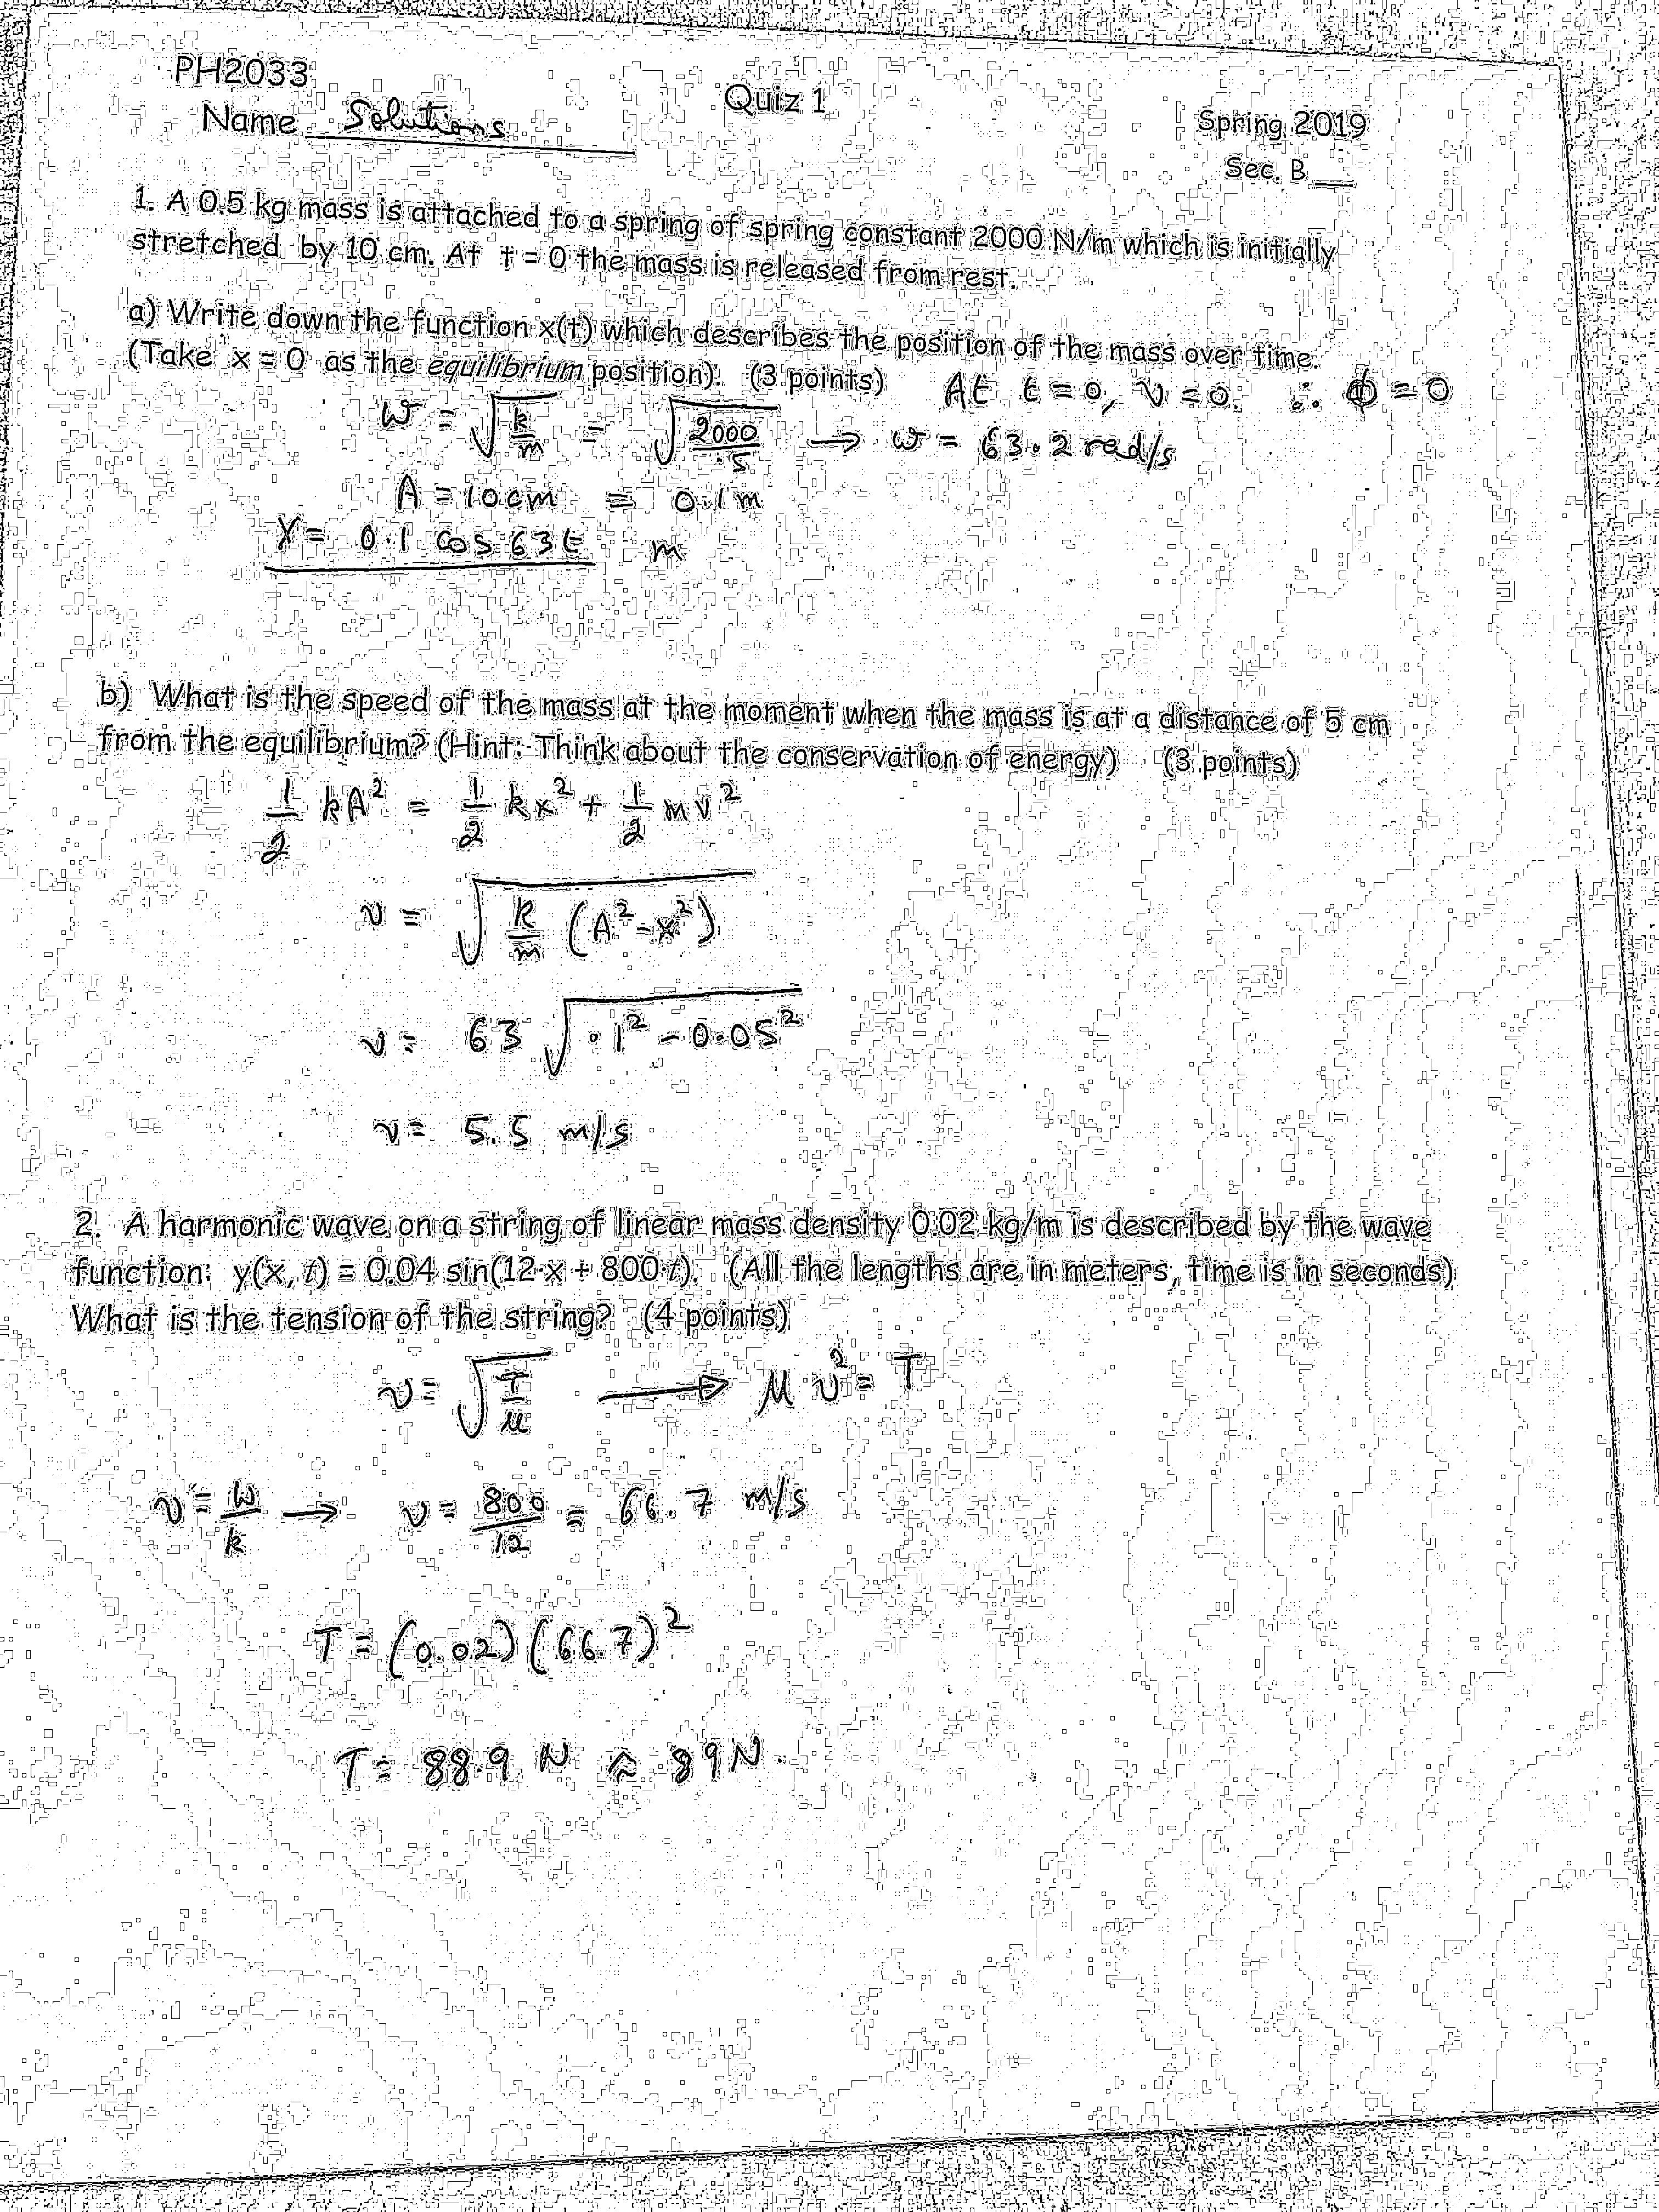 PH2033
Quiz 1
Spring 2019
Name Solutions
Sec. B __
1. A 0.5 kg mass is attached to a spring of spring constant 2000 N/m which is initially
stretched by 10 cm. At t = 0 the mass is released from rest.
a) Write down the function x(t) which describes the position of the mass over time.
(Take x = 0 as the equilibrium position). (3 points) At t = 0, v = 0. ∴ ϕ = 0
ω = √(k/m) = √(2000/.5) → ω = 63.2 rad/s
A = 10 cm = 0.1 m
x = 0.1 cos 63t m
b) What is the speed of the mass at the moment when the mass is at a distance of 5 cm
from the equilibrium? (Hint: Think about the conservation of energy) (3 points)
1/2 kA² = 1/2 kx² + 1/2 mv²
v = √(k/m (A² - x²))
v = 63 √(.1² - 0.05²)
v = 5.5 m/s
2. A harmonic wave on a string of linear mass density 0.02 kg/m is described by the wave
function: y(x, t) = 0.04 sin(12·x + 800·t). (All the lengths are in meters, time is in seconds)
What is the tension of the string? (4 points)
v = √(T/μ) → μ v² = T
v = ω/k → v = 800/12 = 66.7 m/s
T = (0.02) (66.7)²
T = 88.9 N ≈ 89 N.